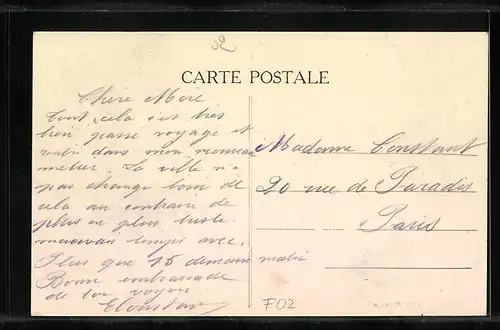 52
CARTE POSTALE
Chère Mère
Tout cela s'est très
bien passé voyage et
dans mon nouveau
metier. La ville n'a
pas changé loin de
cela au contraire de
plus en plus triste
mauvais temps avec.
Plus que 15 demain matin
Bonne embrassade
de ton
Constant
Madame Constant
20 rue de Paradis
Paris
F02